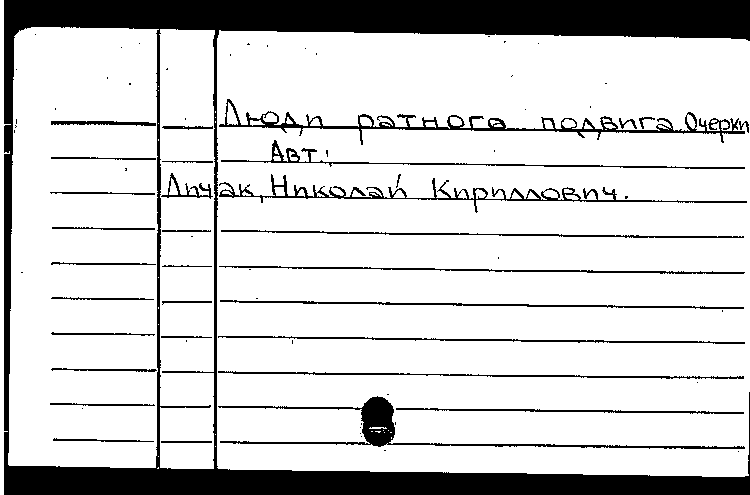 Люди ратного подвига. Очерки
Авт.:
Личак, Николай Кириллович.